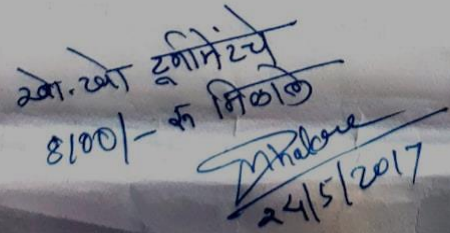 खो.खो टूर्नामेंटचे
8100/- रु मिळाले
24/5/2017